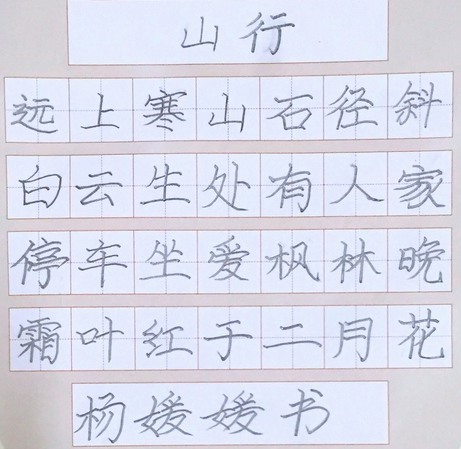 山行
远上寒山石径斜
白云生处有人家
停车坐爱枫林晚
霜叶红于二月花
杨媛媛书